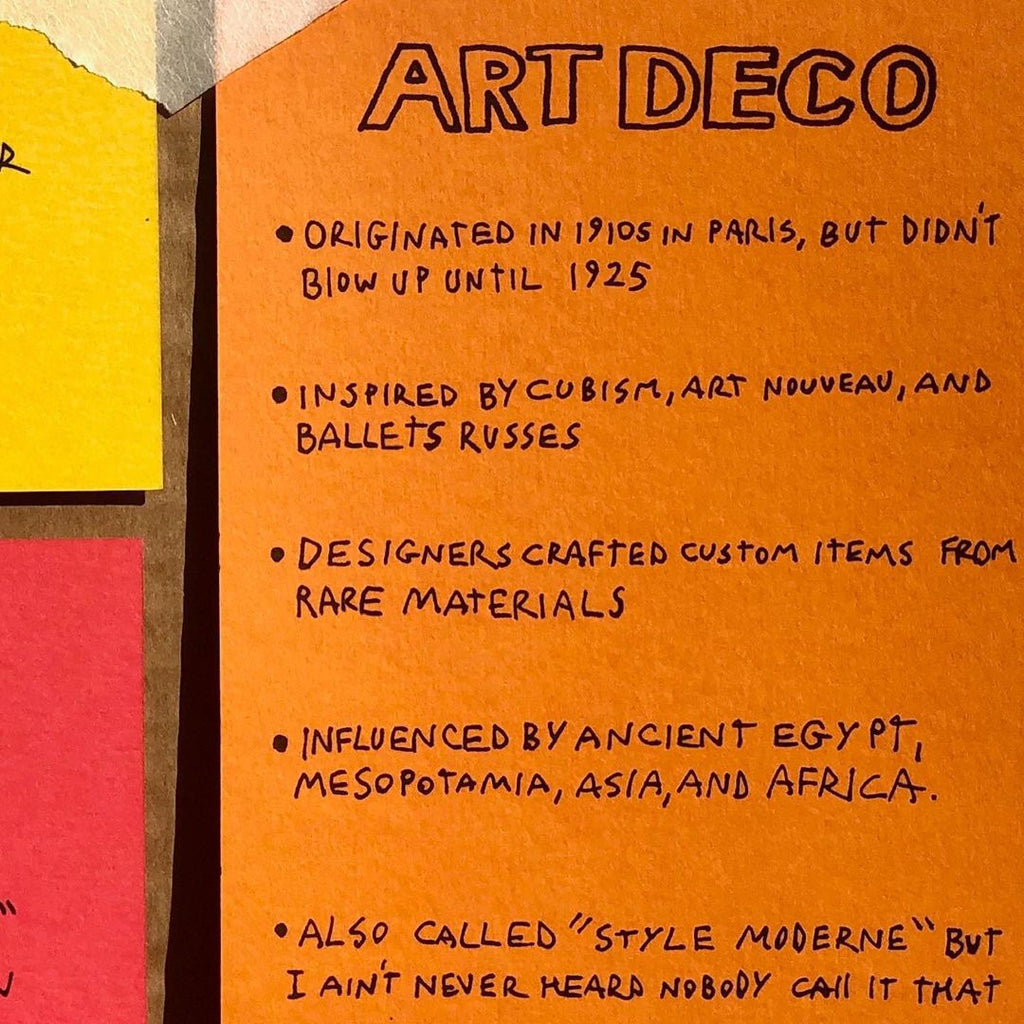 ART DECO
• ORIGINATED IN 1910S IN PARIS, BUT DIDN'T
BLOW UP UNTIL 1925
• INSPIRED BY CUBISM, ART NOUVEAU, AND
BALLETS RUSSES
• DESIGNERS CRAFTED CUSTOM ITEMS FROM
RARE MATERIALS
• INFLUENCED BY ANCIENT EGYPT,
MESOPOTAMIA, ASIA, AND AFRICA.
• ALSO CALLED "STYLE MODERNE" BUT
I AIN'T NEVER HEARD NOBODY CALL IT THAT